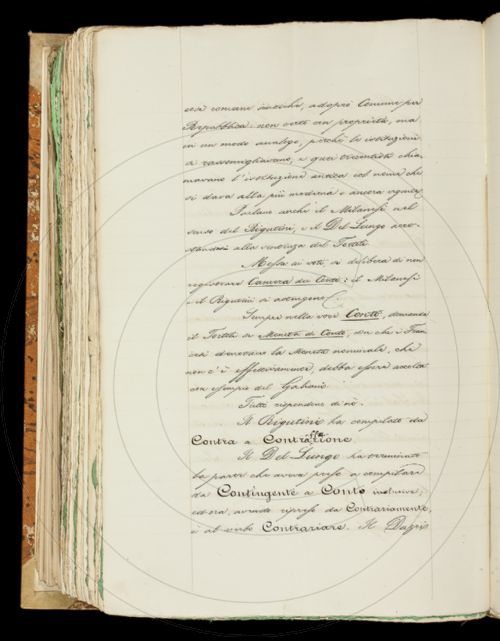 cose romane antiche, adoprò Comune per
Repubblica: non certo con proprietà, ma
in un modo analogo, perchè le istituzioni
si rassomigliavano, e quei trecentisti chia-
mavano l'istituzione antica col nome che
si dava alla più moderna e ancora vigente.
Parlano anche il Milanesi nel
senso del Rigutini, e il Del Lungo acco-
standosi alla sentenza del Tortoli.
Messa ai voti, si delibera di non
registrare Camera dei Conti: il Milanesi
e il Rigutini si astengono.
Sempre nella voce Conto, domanda
il Tortoli se Moneta di Conto, con che i Fran-
cesi denotano la Moneta nominale, che
non c'è effettivamente, debba essere accolta
con esempio del Galiani.
Tutti rispondono di nò.
Il Rigutini ha compilato da
Contra a Contrazione
Il Del Lungo ha terminato
la parte che aveva preso a compilare
da Contingente a Conto inclusive;
ed ora, avendo ripreso da Contrariamente,
è al verbo Contrariare. Il Dazzi